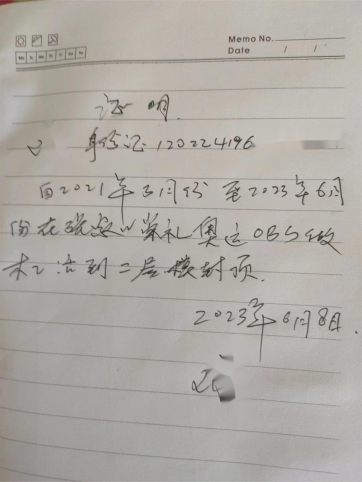 Memo No.
Date / /
证明
身份证:120224196
自2021年3月份至2023年6月
份在张家口崇礼奥运OBS做
木工活到二层楼封顶.
2023年6月8日.